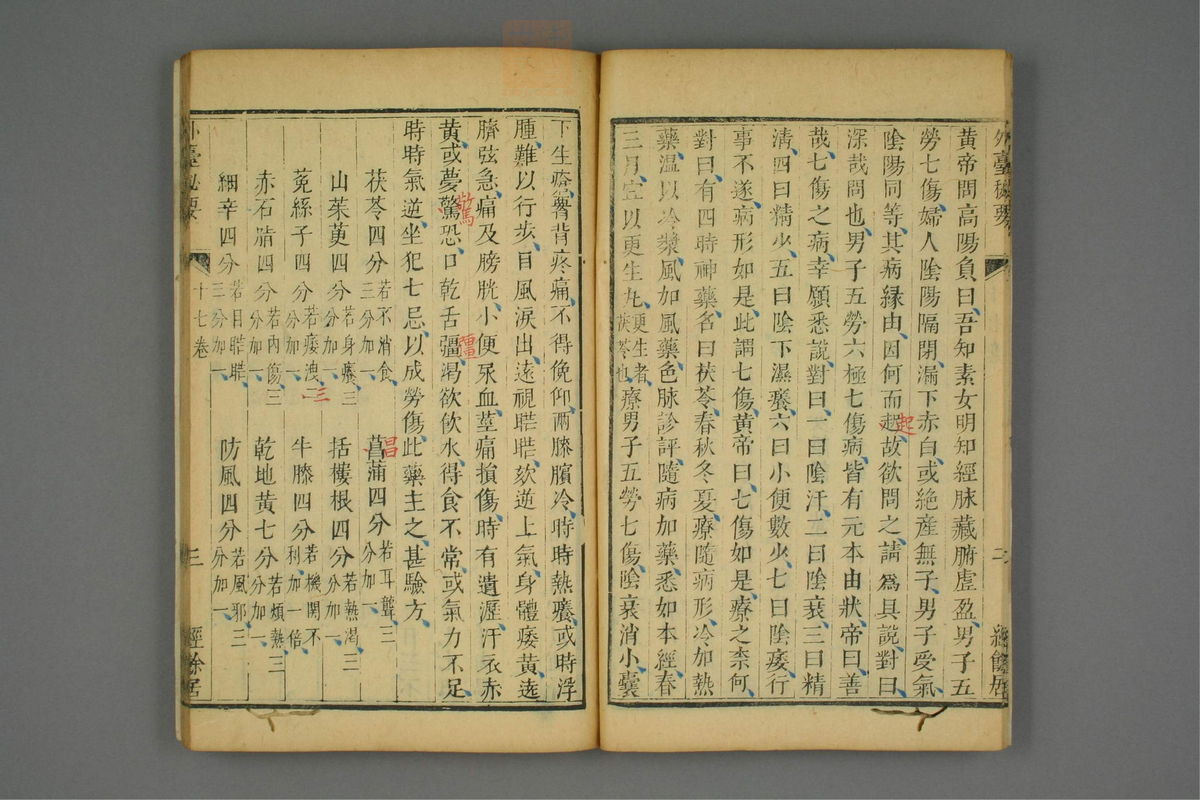 外臺秘要
黃帝問高陽負曰吾知素女明知經脉藏腑虛盈男子五
勞七傷婦人陰陽隔閉漏下赤白或絶産無子男子受氣
陰陽同等其病縁由因何而起故欲問之請爲具說對曰
起
深哉問也男子五勞六極七傷病皆有元本由狀帝曰善
哉七傷之病幸願悉說對曰一曰陰汗二曰陰衰三曰精
清四曰精少五曰陰下濕癢六曰小便數少七曰陰痿行
事不遂病形如是此謂七傷黃帝曰七傷如是療之柰何
對曰有四時神藥名曰茯苓春秋冬夏療隨病形冷加熱
藥溫以冷漿風加風藥色脉診評隨病加藥悉如本經春
三月宜以更生丸更生者茯苓也療男子五勞七傷陰衰消小囊
下生瘡背疼痛不得俛仰兩膝臏冷時時熱癢或時浮
腫難以行步目風淚出遠視䀮䀮欬逆上氣身體痿黃遶
臍弦急痛及膀胱小便尿血莖痛損傷時有遺瀝汗衣赤
黃或夢驚恐口乾舌彊渴欲飲水得食不常或氣力不足
驚
畺
時時氣逆坐犯七忌以成勞傷此藥主之甚驗方
茯苓四分若不消食三分加一
菖蒲四分若耳聾三分加一
昌
山茱萸四分若身癢三分加一
括樓根四分若熱渴三分加一
菟絲子四分若痿洩三分加一
三
牛膝四分若機關不利加一倍
赤石脂四分若内傷三分加一
乾地黃七分若煩熱三分加一
細辛四分若目䀮䀮三分加一
防風四分若風邪三分加一
外臺秘要
十七卷
三
經餘居